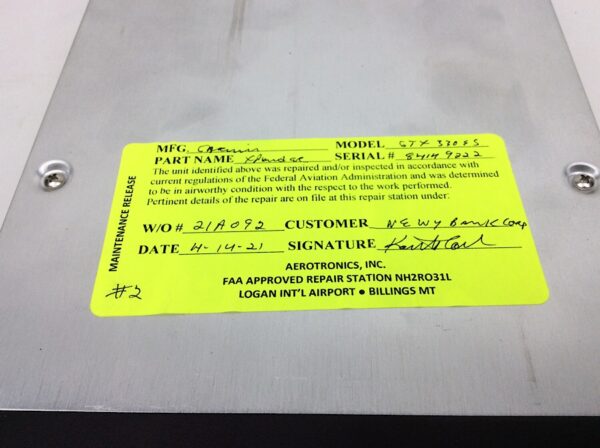 MFG. Garmin MODEL GTX 330ES
PART NAME Xponder SERIAL # 84149222
The unit identified above was repaired and/or inspected in accordance with
current regulations of the Federal Aviation Administration and was determined
to be in airworthy condition with the respect to the work performed.
Pertinent details of the repair are on file at this repair station under:
W/O # 21A092 CUSTOMER NE WY Bank Corp
DATE 4-14-21 SIGNATURE
AEROTRONICS, INC.
FAA APPROVED REPAIR STATION NH2RO31L
LOGAN INT'L AIRPORT • BILLINGS MT
MAINTENANCE RELEASE
#2